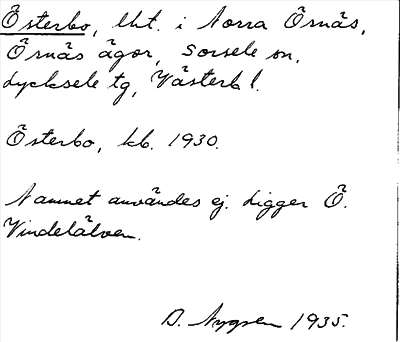 Österbo, lht. i Norra Örnäs,
Örnäs ägor, Sorsele sn,
Lycksele tg, Västerb l.
Österbo, kb. 1930.
Namnet användes ej. Ligger Ö.
Vindelälven.
D. 1935.